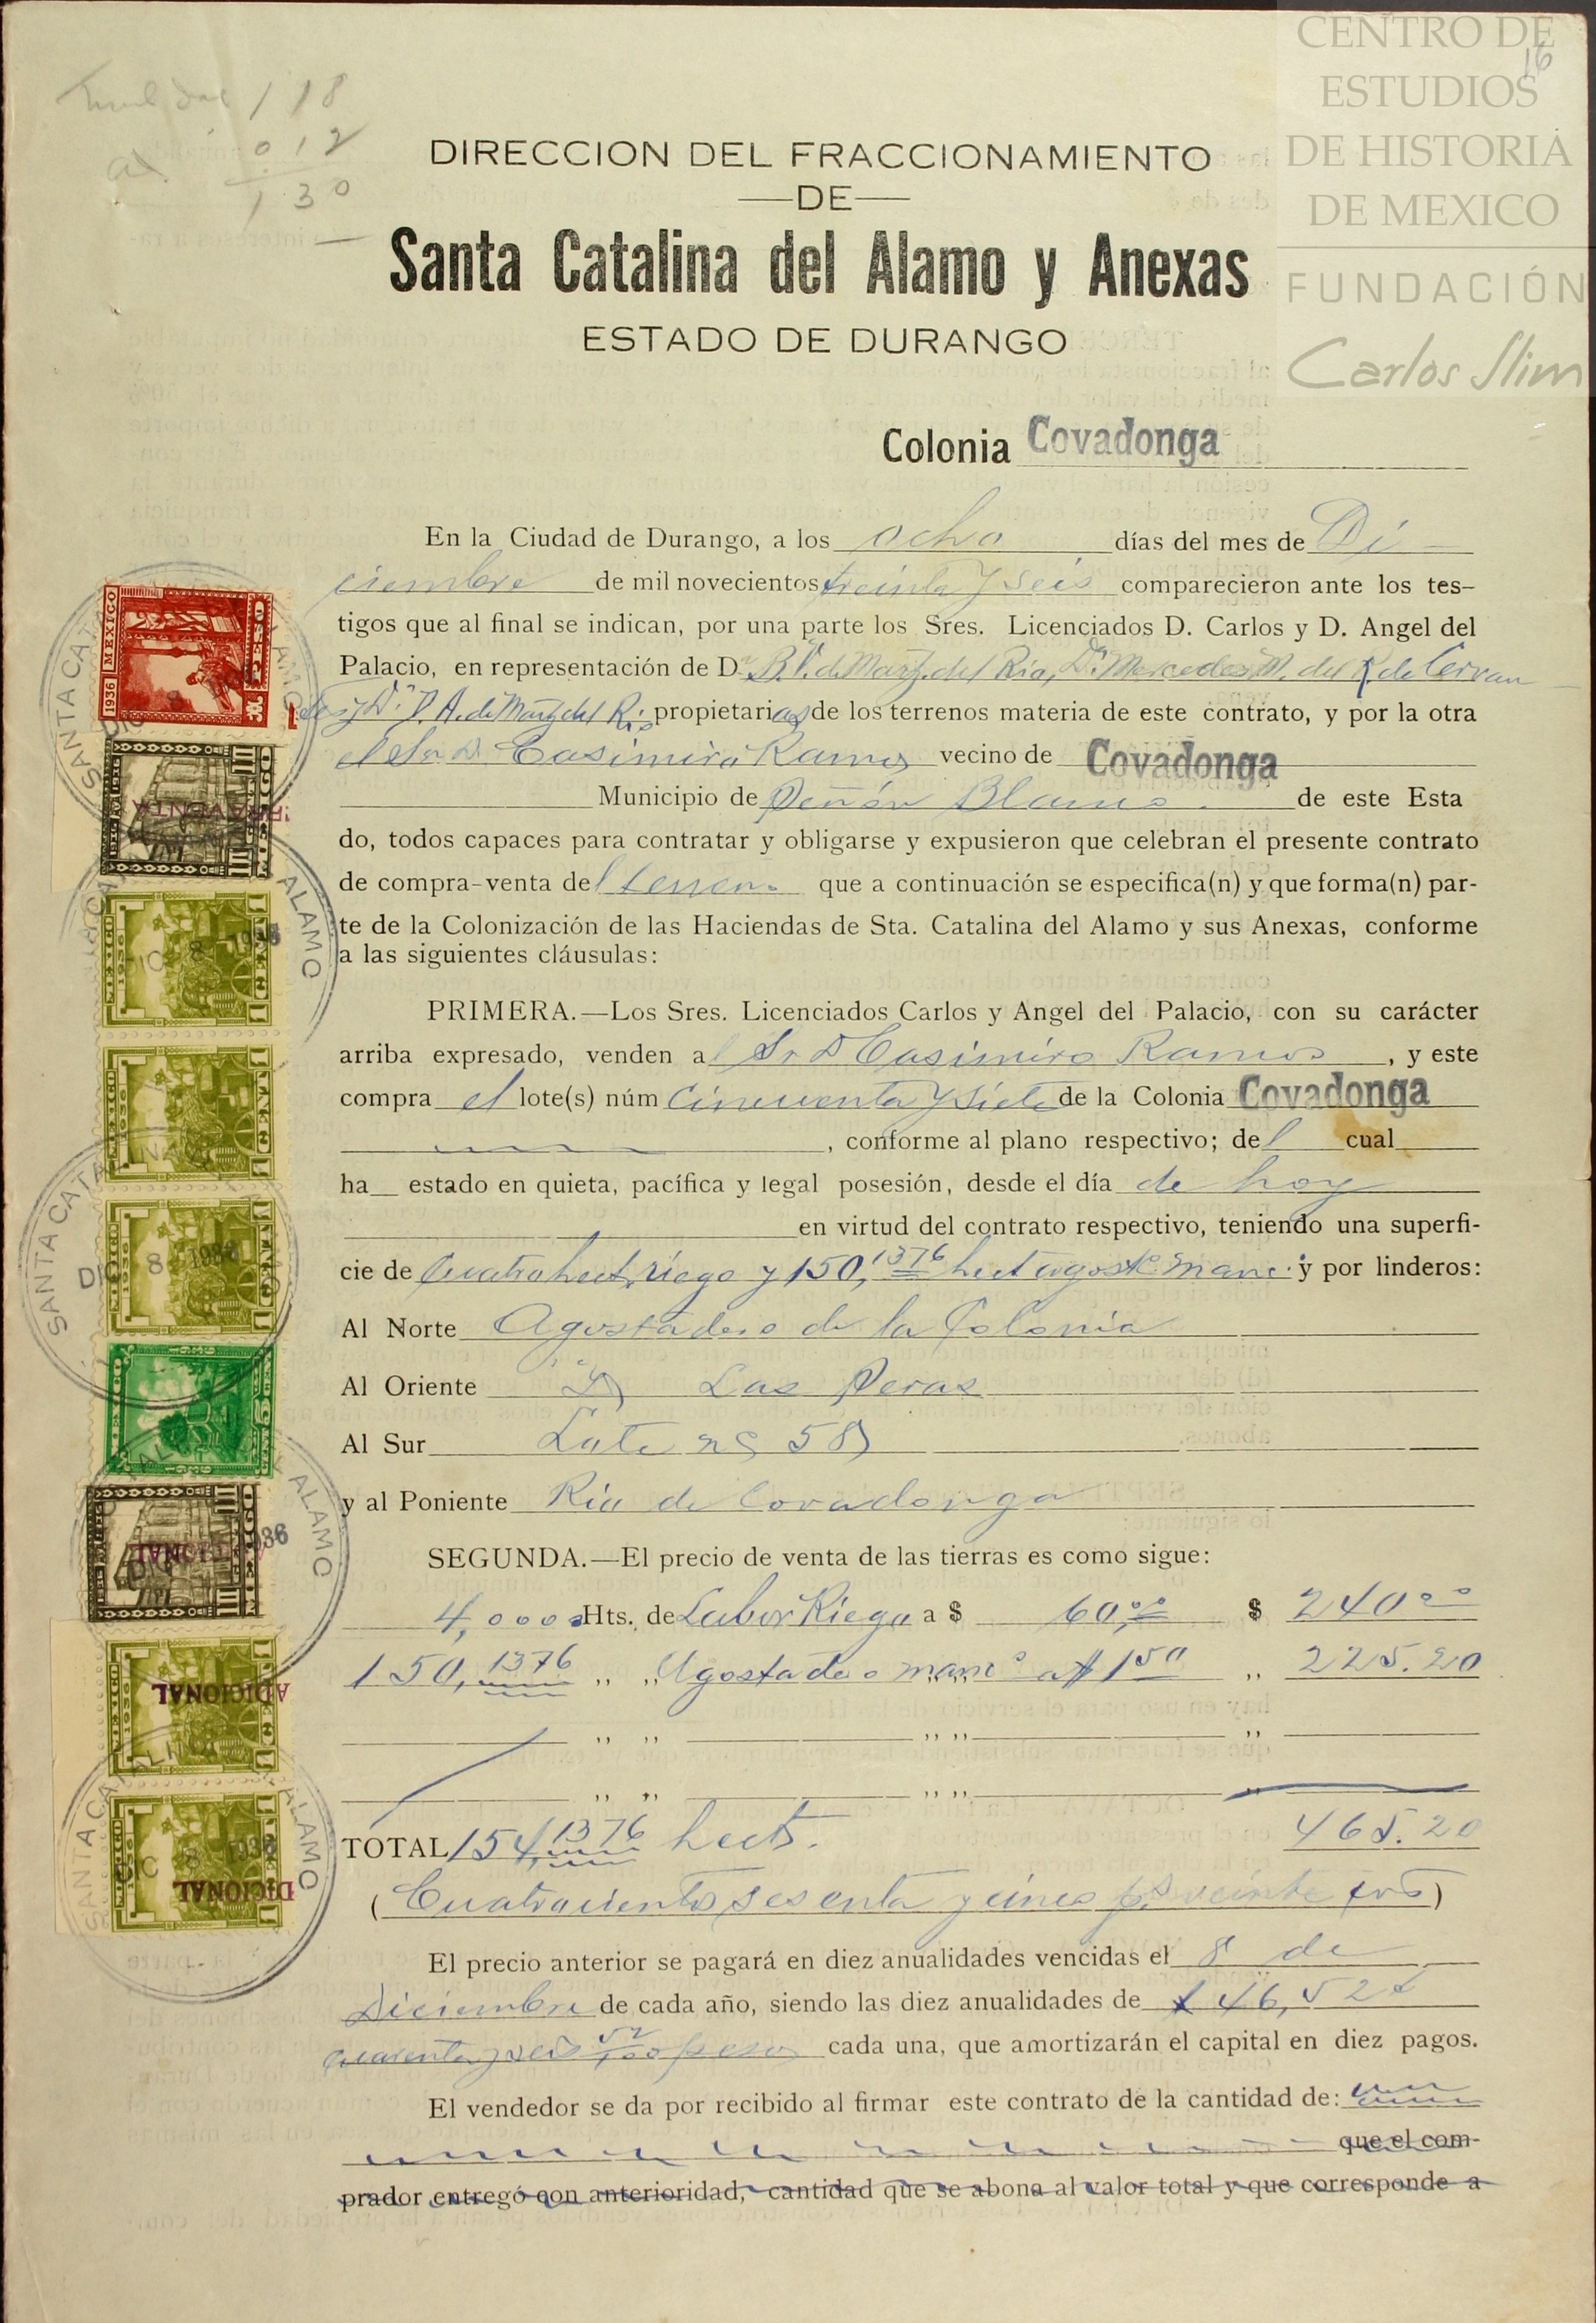 CENTRO DE
ESTUDIOS
DE HISTORIA
DE MEXICO
FUNDACIÓN
Carlos Slim
16
118
012
130
DIRECCION DEL FRACCIONAMIENTO
—DE—
Santa Catalina del Alamo y Anexas
ESTADO DE DURANGO
Colonia Covadonga
En la Ciudad de Durango, a los ocho días del mes de Di-
ciembre de mil novecientos treinta y seis comparecieron ante los tes-
tigos que al final se indican, por una parte los Sres. Licenciados D. Carlos y D. Angel del
Palacio, en representación de D. B. V. de Martz. del Rio, Da. Mercedes M. del R. de Cervan
tes y Da. A. de Martz del R. propietarias de los terrenos materia de este contrato, y por la otra
el Sr. D. Casimiro Ramos vecino de Covadonga
Municipio de Peñón Blanco. de este Esta
do, todos capaces para contratar y obligarse y expusieron que celebran el presente contrato
de compra-venta del terreno que a continuación se especifica(n) y que forma(n) par-
te de la Colonización de las Haciendas de Sta. Catalina del Alamo y sus Anexas, conforme
a las siguientes cláusulas:
PRIMERA.—Los Sres. Licenciados Carlos y Angel del Palacio, con su carácter
arriba expresado, venden al Sr D Casimiro Ramos, y este
compra el lote(s) núm Cincuenta y siete de la Colonia Covadonga
, conforme al plano respectivo; del cual
ha estado en quieta, pacífica y legal posesión, desde el día de hoy
en virtud del contrato respectivo, teniendo una superfi-
cie de Cuatro hect. riego y 150,1376 hect agosto. manc. y por linderos:
Al Norte Agostadero de la Colonia
Al Oriente Las Peras
Al Sur Lote no 58
y al Poniente Rio de Covadonga
SEGUNDA.—El precio de venta de las tierras es como sigue:
4,0000 Hts. de Labor Riego a $ 60,00 $ 240 00
150,1376 ,, ,, Agostadero manco a $ 1 50 ,, 225.20
,, ,, ,, ,, ,,
,, ,, ,, ,, ,,
TOTAL 154,1376 hects. 465.20
(Cuatrocientos sesenta y cinco ps. veinte cvs)
El precio anterior se pagará en diez anualidades vencidas el 8 de
Diciembre de cada año, siendo las diez anualidades de $ 46,52
cuarenta y seis 52/100 pesos cada una, que amortizarán el capital en diez pagos.
El vendedor se da por recibido al firmar este contrato de la cantidad de:
que el com-
prador entregó con anterioridad, cantidad que se abona al valor total y que corresponde a
1936 MEXICO
UN PESO
SANTA CATALINA
ALAMO
DIC 8 1936
ADICIONAL
ADICIONAL
ADICIONAL